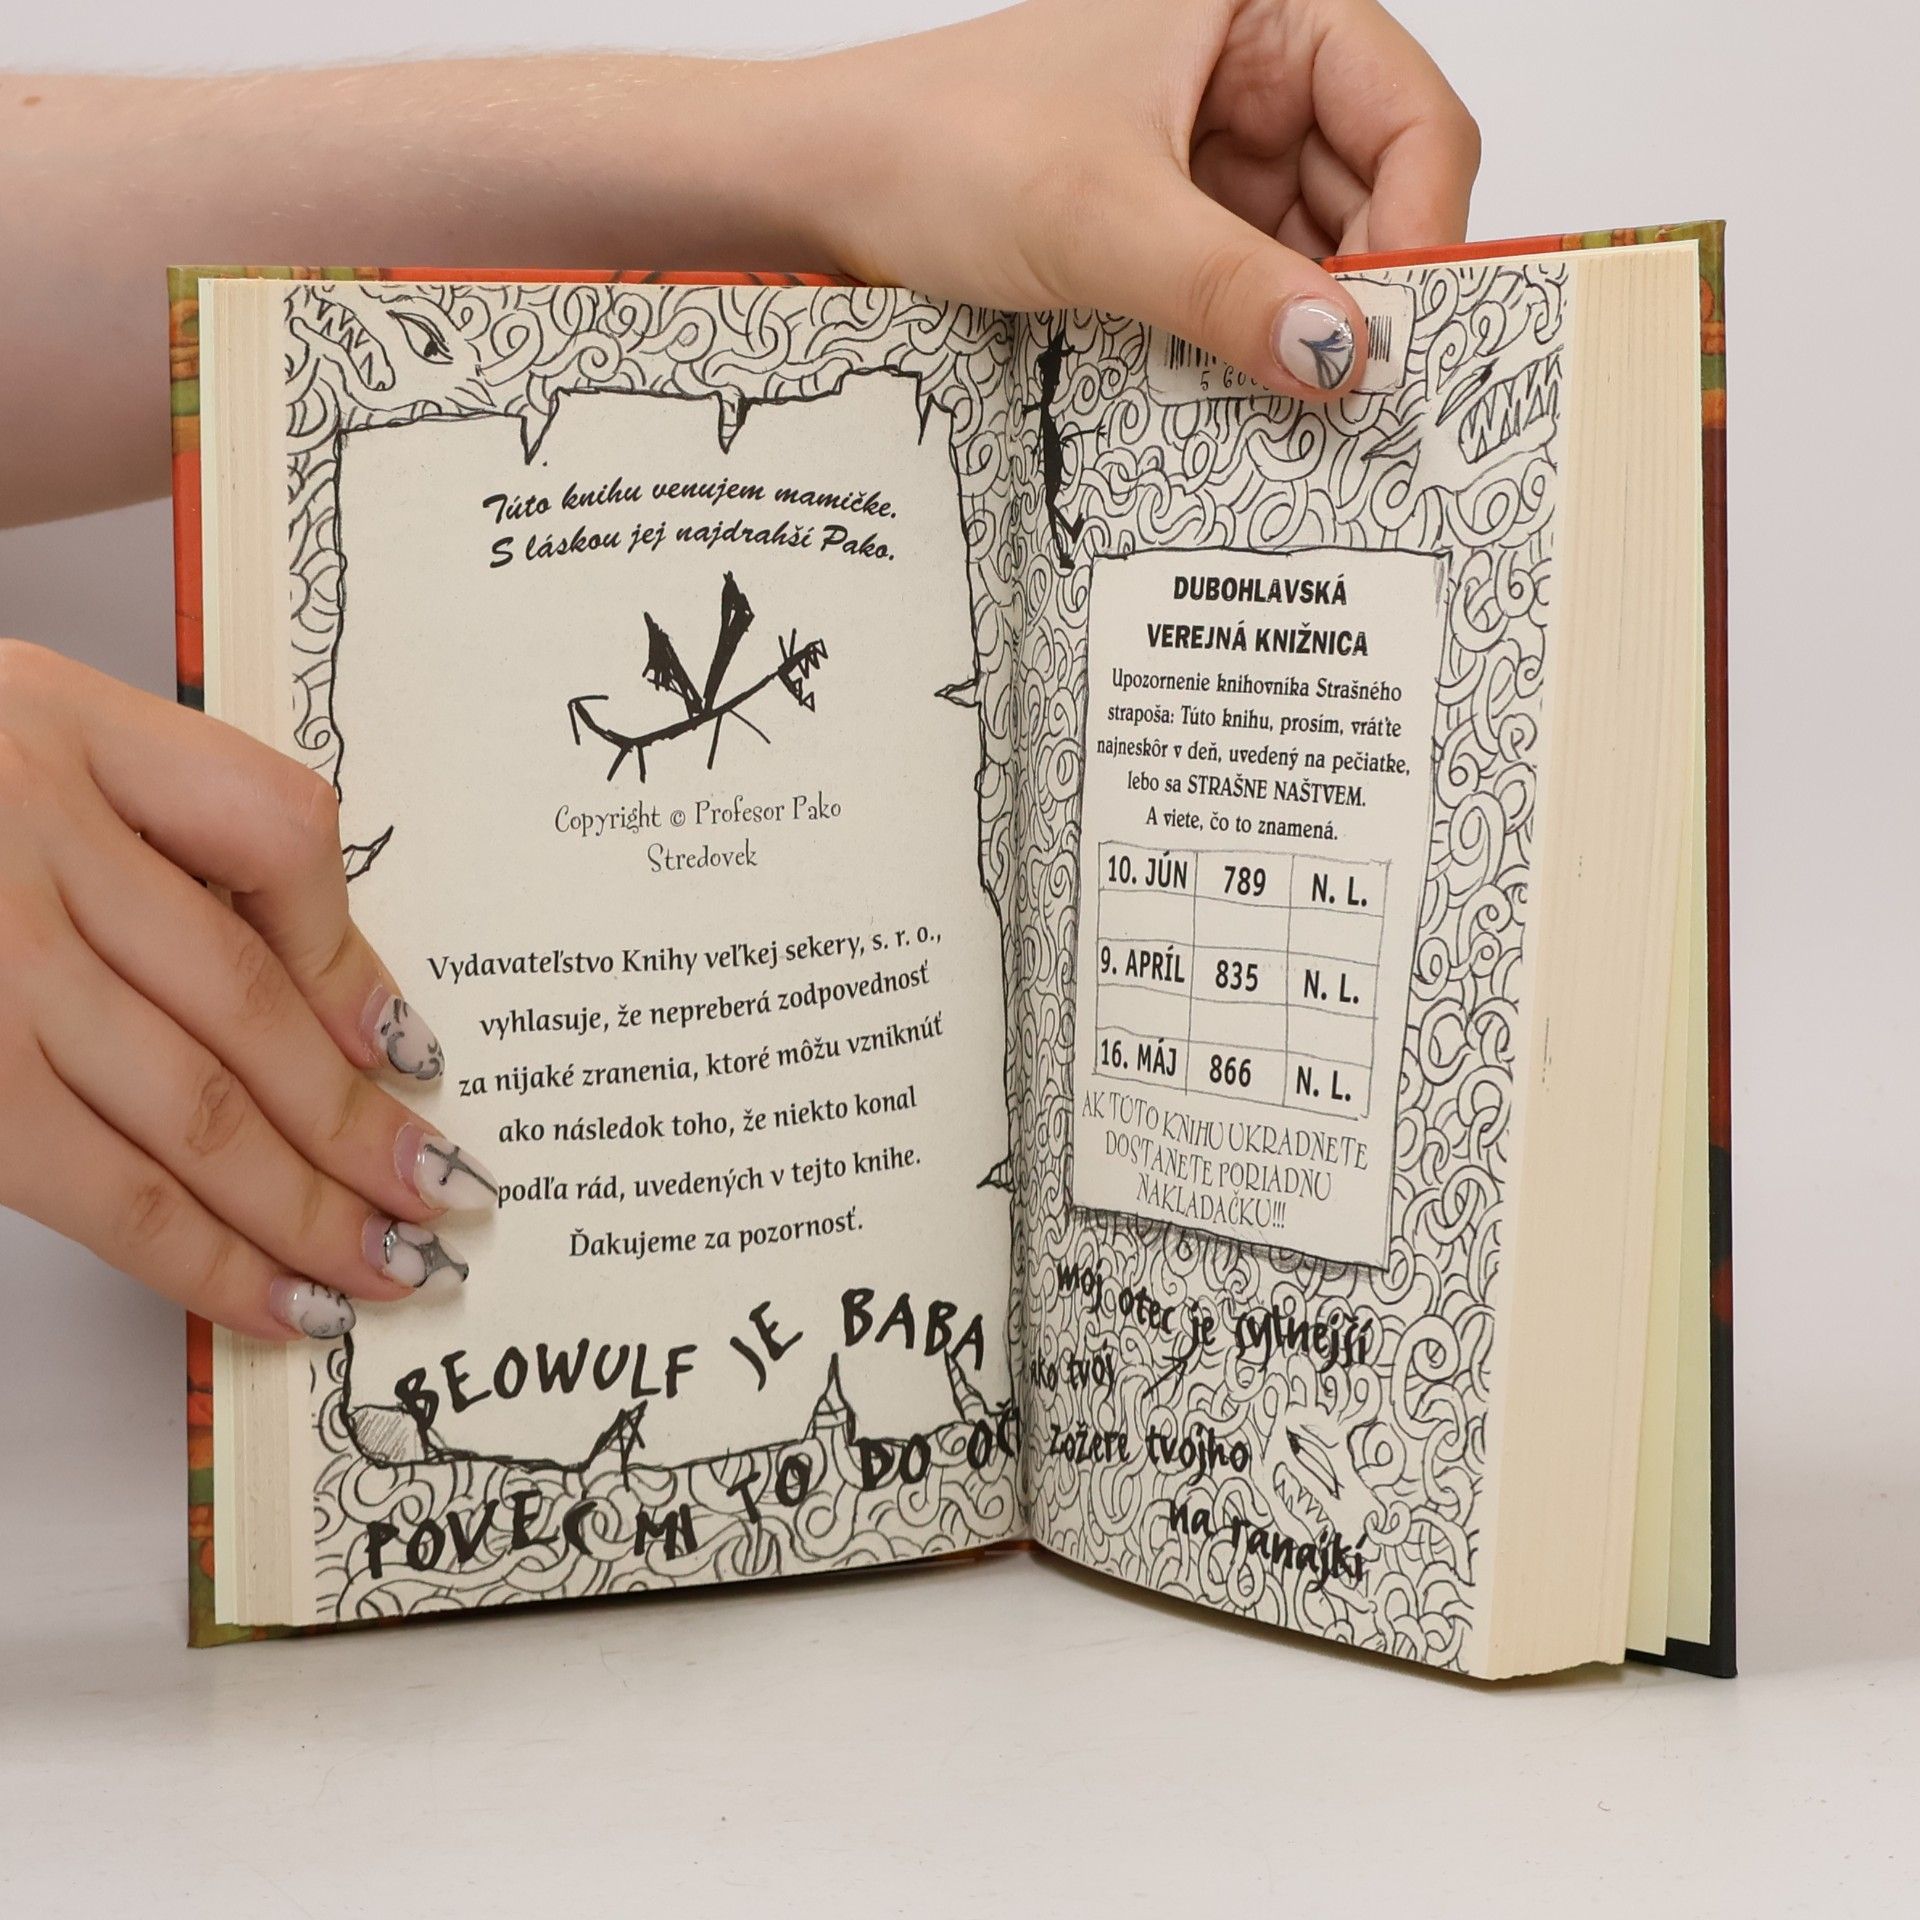 Túto knihu venujem mamičke.
S láskou jej najdrahší Pako.
Copyright © Profesor Pako
Stredovek
Vydavateľstvo Knihy veľkej sekery, s. r. o.,
vyhlasuje, že nepreberá zodpovednosť
za nijaké zranenia, ktoré môžu vzniknúť
ako následok toho, že niekto konal
podľa rád, uvedených v tejto knihe.
Ďakujeme za pozornosť.
BEOWULF JE BABA
POVEC MI TO DO OČ
DUBOHLAVSKÁ
VEREJNÁ KNIŽNICA
Upozornenie knihovníka Strašného
strapoša: Túto knihu, prosím, vráťte
najneskôr v deň, uvedený na pečiatke,
lebo sa STRAŠNE NAŠTVEM.
A viete, čo to znamená.
10. JÚN 789 N. L.
9. APRÍL 835 N. L.
16. MÁJ 866 N. L.
AK TÚTO KNIHU UKRADNETE
DOSTANETE PORIADNU
NAKLADAČKU!!!
moj otec je sylnejší
ako tvoj
zožere tvojho
na ranajkí